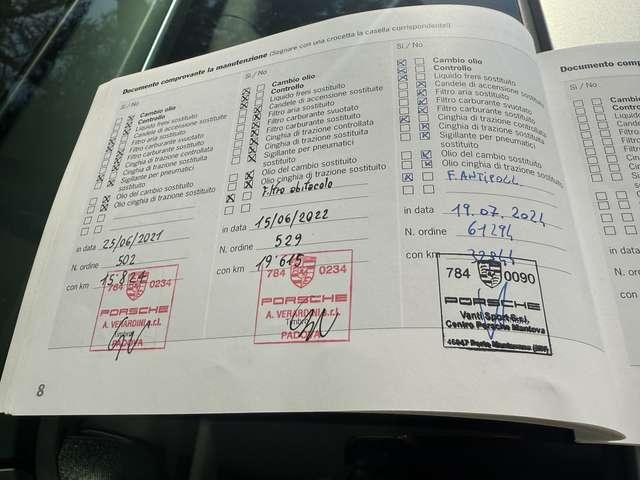 Documento comprovante la manutenzione (Segnare con una crocetta la casella corrispondente!)
Sì / No
Cambio olio
Controllo
Liquido freni sostituito
Candele di accensione sostituite
Filtro aria sostituito
Filtro carburante svuotato
Filtro carburante sostituito
Cinghia di trazione controllata
Cinghia di trazione sostituita
Sigillante per pneumatici
sostituito
Olio del cambio sostituito
Olio cinghia di trazione sostituito
in data 25/06/2021
N. ordine 502
con km 15'824
784 0234
PORSCHE
A. VERARDINI s.r.l.
PADOVA
Sì / No
Cambio olio
Controllo
Liquido freni sostituito
Candele di accensione sostituite
Filtro aria sostituito
Filtro carburante svuotato
Filtro carburante sostituito
Cinghia di trazione controllata
Cinghia di trazione sostituita
Sigillante per pneumatici
sostituito
Olio del cambio sostituito
Olio cinghia di trazione sostituito
Filtro abitacolo
in data 15/06/2022
N. ordine 529
con km 19'615
784 0234
PORSCHE
A. VERARDINI s.r.l.
PADOVA
Sì / No
Cambio olio
Controllo
Liquido freni sostituito
Candele di accensione sostituite
Filtro aria sostituito
Filtro carburante svuotato
Filtro carburante sostituito
Cinghia di trazione controllata
Cinghia di trazione sostituita
Sigillante per pneumatici
sostituito
Olio del cambio sostituito
Olio cinghia di trazione sostituito
F. ANTIPOLL.
in data 19.07.2024
N. ordine 61294
con km 32844
784 0090
PORSCHE
Vanti Sport S.r.l.
Centro Porsche Mantova
8
Documento comp
Sì / No
in data
N. ordine
con km